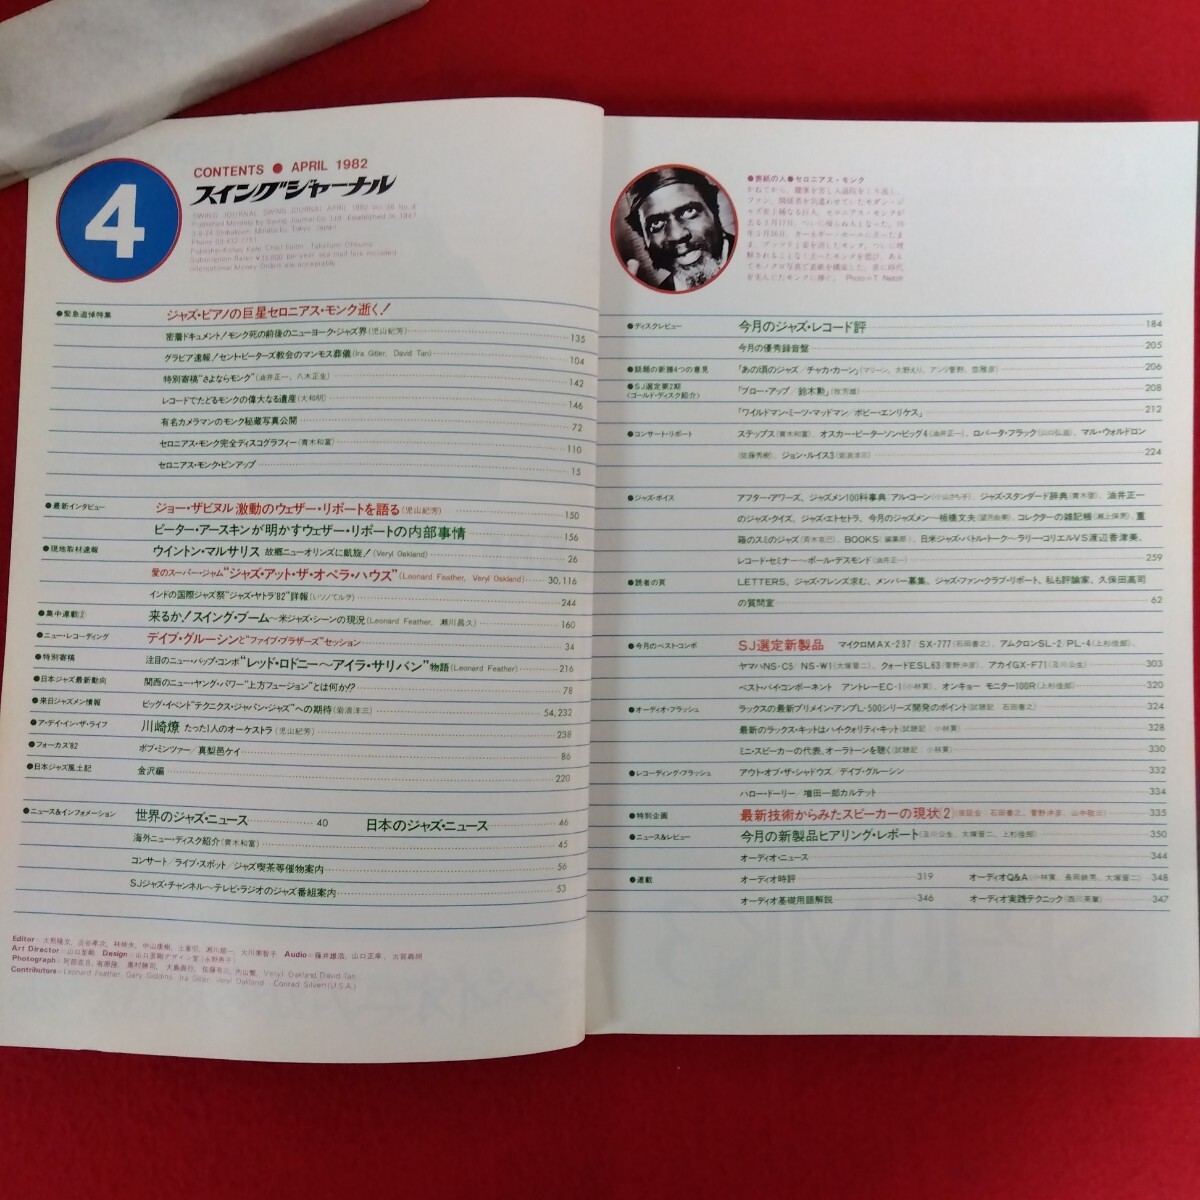 4
CONTENTS ● APRIL 1982
スイングジャーナル
SWING JOURNAL, SWING JOURNAL APRIL 1982 Vol.36 No.4
Published Monthly by Swing Journal Co. Ltd. Established in 1947
●緊急追悼特集 ジャズ・ピアノの巨星セロニアス・モンク逝く!
密着ドキュメント/モンク死の前後のニューヨーク・ジャズ界(児山紀芳) 135
グラビア速報!セント・ピーターズ教会のマンモス葬儀(Ira Gitler, David Tan) 104
特別寄稿“さよならモンク”(油井正一、八木正生) 142
レコードでたどるモンクの偉大なる遺産(大和明) 146
有名カメラマンのモンク秘蔵写真公開 72
セロニアス・モンク完全ディスコグラフィー(青木和富) 110
セロニアス・モンク・ピンアップ 15
●最新インタビュー ジョー・ザビヌル激動のウェザー・リポートを語る(児山紀芳) 150
ピーター・アースキンが明かすウェザー・リポートの内部事情 156
●現地取材速報 ウイントン・マルサリス 故郷ニューオリンズに凱旋!(Veryl Oakland) 26
愛のスーパー・ジャム“ジャズ・アット・ザ・オペラ・ハウス”(Leonard Feather, Veryl Oakland) 30,116
インドの国際ジャズ祭“ジャズ・ヤトラ'82”詳報(いソノてルヲ) 244
●集中連載② 来るか!スイング・ブーム〜米ジャズ・シーンの現況(Leonard Feather, 瀬川昌久) 160
●ニュー・レコーディング デイブ・グルーシンと“ファイブ・ブラザーズ”セッション 34
●特別寄稿 注目のニュー・バップ・コンボ“レッド・ロドニー〜アイラ・サリバン”物語(Leonard Feather) 216
●日本ジャズ最新動向 関西のニュー・ヤング・パワー“上方フュージョン”とは何か!? 78
●来日ジャズメン情報 ビッグ・イベント“テクニクス・ジャパン・ジャズ”への期待(岩浪洋三) 54,232
●ア・デイ・イン・ザ・ライフ 川崎燎 たった1人のオーケストラ(児山紀芳) 238
●フォーカス'82 ボブ・ミンツァー/真梨邑ケイ 86
●日本ジャズ風土記 金沢編 220
●ニュース&インフォメーション 世界のジャズ・ニュース 40 日本のジャズ・ニュース 46
海外ニュー・ディスク紹介(青木和富) 45
コンサート/ライブ・スポット/ジャズ喫茶等催物案内 56
SJジャズ・チャンネル〜テレビ・ラジオのジャズ番組案内 53
Contributors—Leonard Feather, Gary Giddins, Ira Gitler, Veryl Oakland, Conrad Silvert(U.S.A.)
●表紙の人●セロニアス・モンク
●ディスクレビュー 今月のジャズ・レコード評 184
今月の優秀録音盤 205
●話題の新譜4つの意見 「あの頃のジャズ/チャカ・カーン」 206
●SJ選定第2期 「ブロー・アップ/鈴木勲」(牧芳雄) 208
〈ゴールド・ディスク紹介〉
「ワイルドマン・ミーツ・マッドマン/ボビー・エンリケス」 212
●コンサート・リポート ステップス(青木和富)、オスカー・ピーターソン・ビッグ4(油井正一)、ロバータ・フラック(山口弘滋)、マル・ウォルドロン
(佐藤秀樹)、ジョン・ルイス3(岩浪洋三) 224
●ジャズ・ボイス アフター・アワーズ、ジャズメン100科事典/アル・コーン(小山さち子)、ジャズ・スタンダード辞典(青木啓)、油井正一
のジャズ・クイズ、ジャズ・エトセトラ、今月のジャズメン〜板橋文夫(望月由美)、コレクターの雑記帳(瀬上保男)、重
箱のスミのジャズ、BOOKS(編集部)、日米ジャズ・バトルトーク〜ラリー・コリエルVS渡辺香津美、
レコード・セミナー〜ポール・デスモンド(油井正一) 259
●読者の頁 LETTERS、ジャズ・フレンズ求む、メンバー募集、ジャズ・ファン・クラブ・リポート、私も評論家、久保田高司
の質問室 62
●今月のベストコンポ SJ選定新製品 マイクロMAX-237/SX-777(石田善之)、アムクロンSL-2/PL-4(上杉佳郎)、
ヤマハNS-C5/NS-W1(大塚晋二)、クォードESL63(菅野沖彦)、アカイGX-F71(及川公生) 303
ベスト・バイ・コンポーネント アントレーEC-1(小林貢)、オンキョー モニター100R(上杉佳郎) 320
●オーディオ・フラッシュ ラックスの最新プリメイン・アンプL-500シリーズ開発のポイント(試聴記/石田善之) 324
最新のラックス・キットはハイ・クォリティ・キット(試聴記/小林貢) 328
ミニ・スピーカーの代表、オーラトーンを聴く(試聴記/小林貢) 330
●レコーディング・フラッシュ アウト・オブ・ザ・シャドウズ/デイブ・グルーシン 332
ハロー・ドーリー/増田一郎カルテット 334
●特別企画 最新技術からみたスピーカーの現状(2)(座談会/石田善之、菅野沖彦、山中敬三) 335
●ニュース&レビュー 今月の新製品ヒアリング・レポート(及川公生、大塚晋二、上杉佳郎) 350
オーディオ・ニュース 344
●連載 オーディオ時評 319 オーディオQ&A(小林貢、長岡鉄男、大塚晋二) 348
オーディオ基礎用語解説 346 オーディオ実践テクニック 347